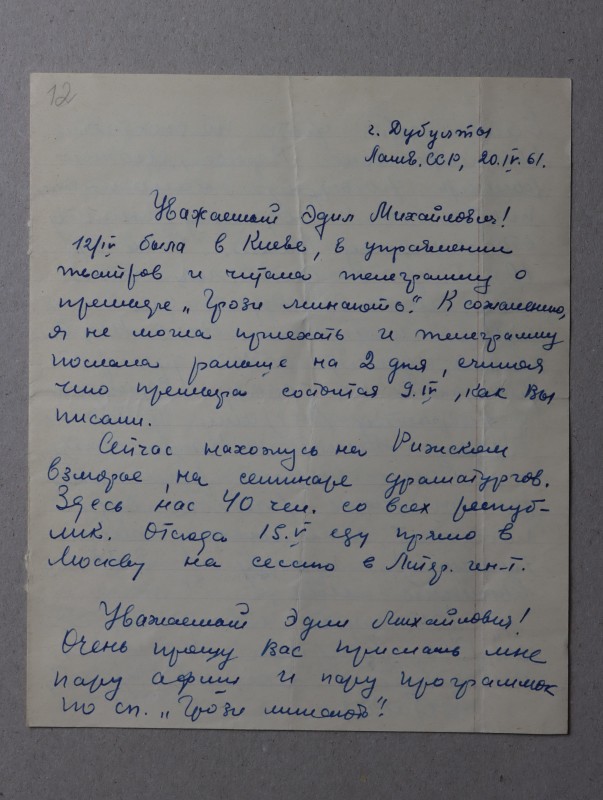 12
г. Дубулты
Латв. ССР, 20.IV.61.
Уважаемый Эдил Михайлович!
12/IV была в Киеве, в управлении
театров и читала телеграмму о
премьере „Грози минають". К сожалению,
я не могла приехать и телеграмму
послала раньше на 2 дня, считая
что премьера состоится 9.IV, как Вы
писали.
Сейчас нахожусь на Рижском
взморье, на семинаре драматургов.
Здесь нас 40 чел. со всех респуб-
лик. Отсюда 15.V еду прямо в
Москву на сессию в Литер. ин-т.
Уважаемый Эдил Михайлович!
Очень прошу Вас прислать мне
пару афиш и пару программок
по сп. „Грози минають"!